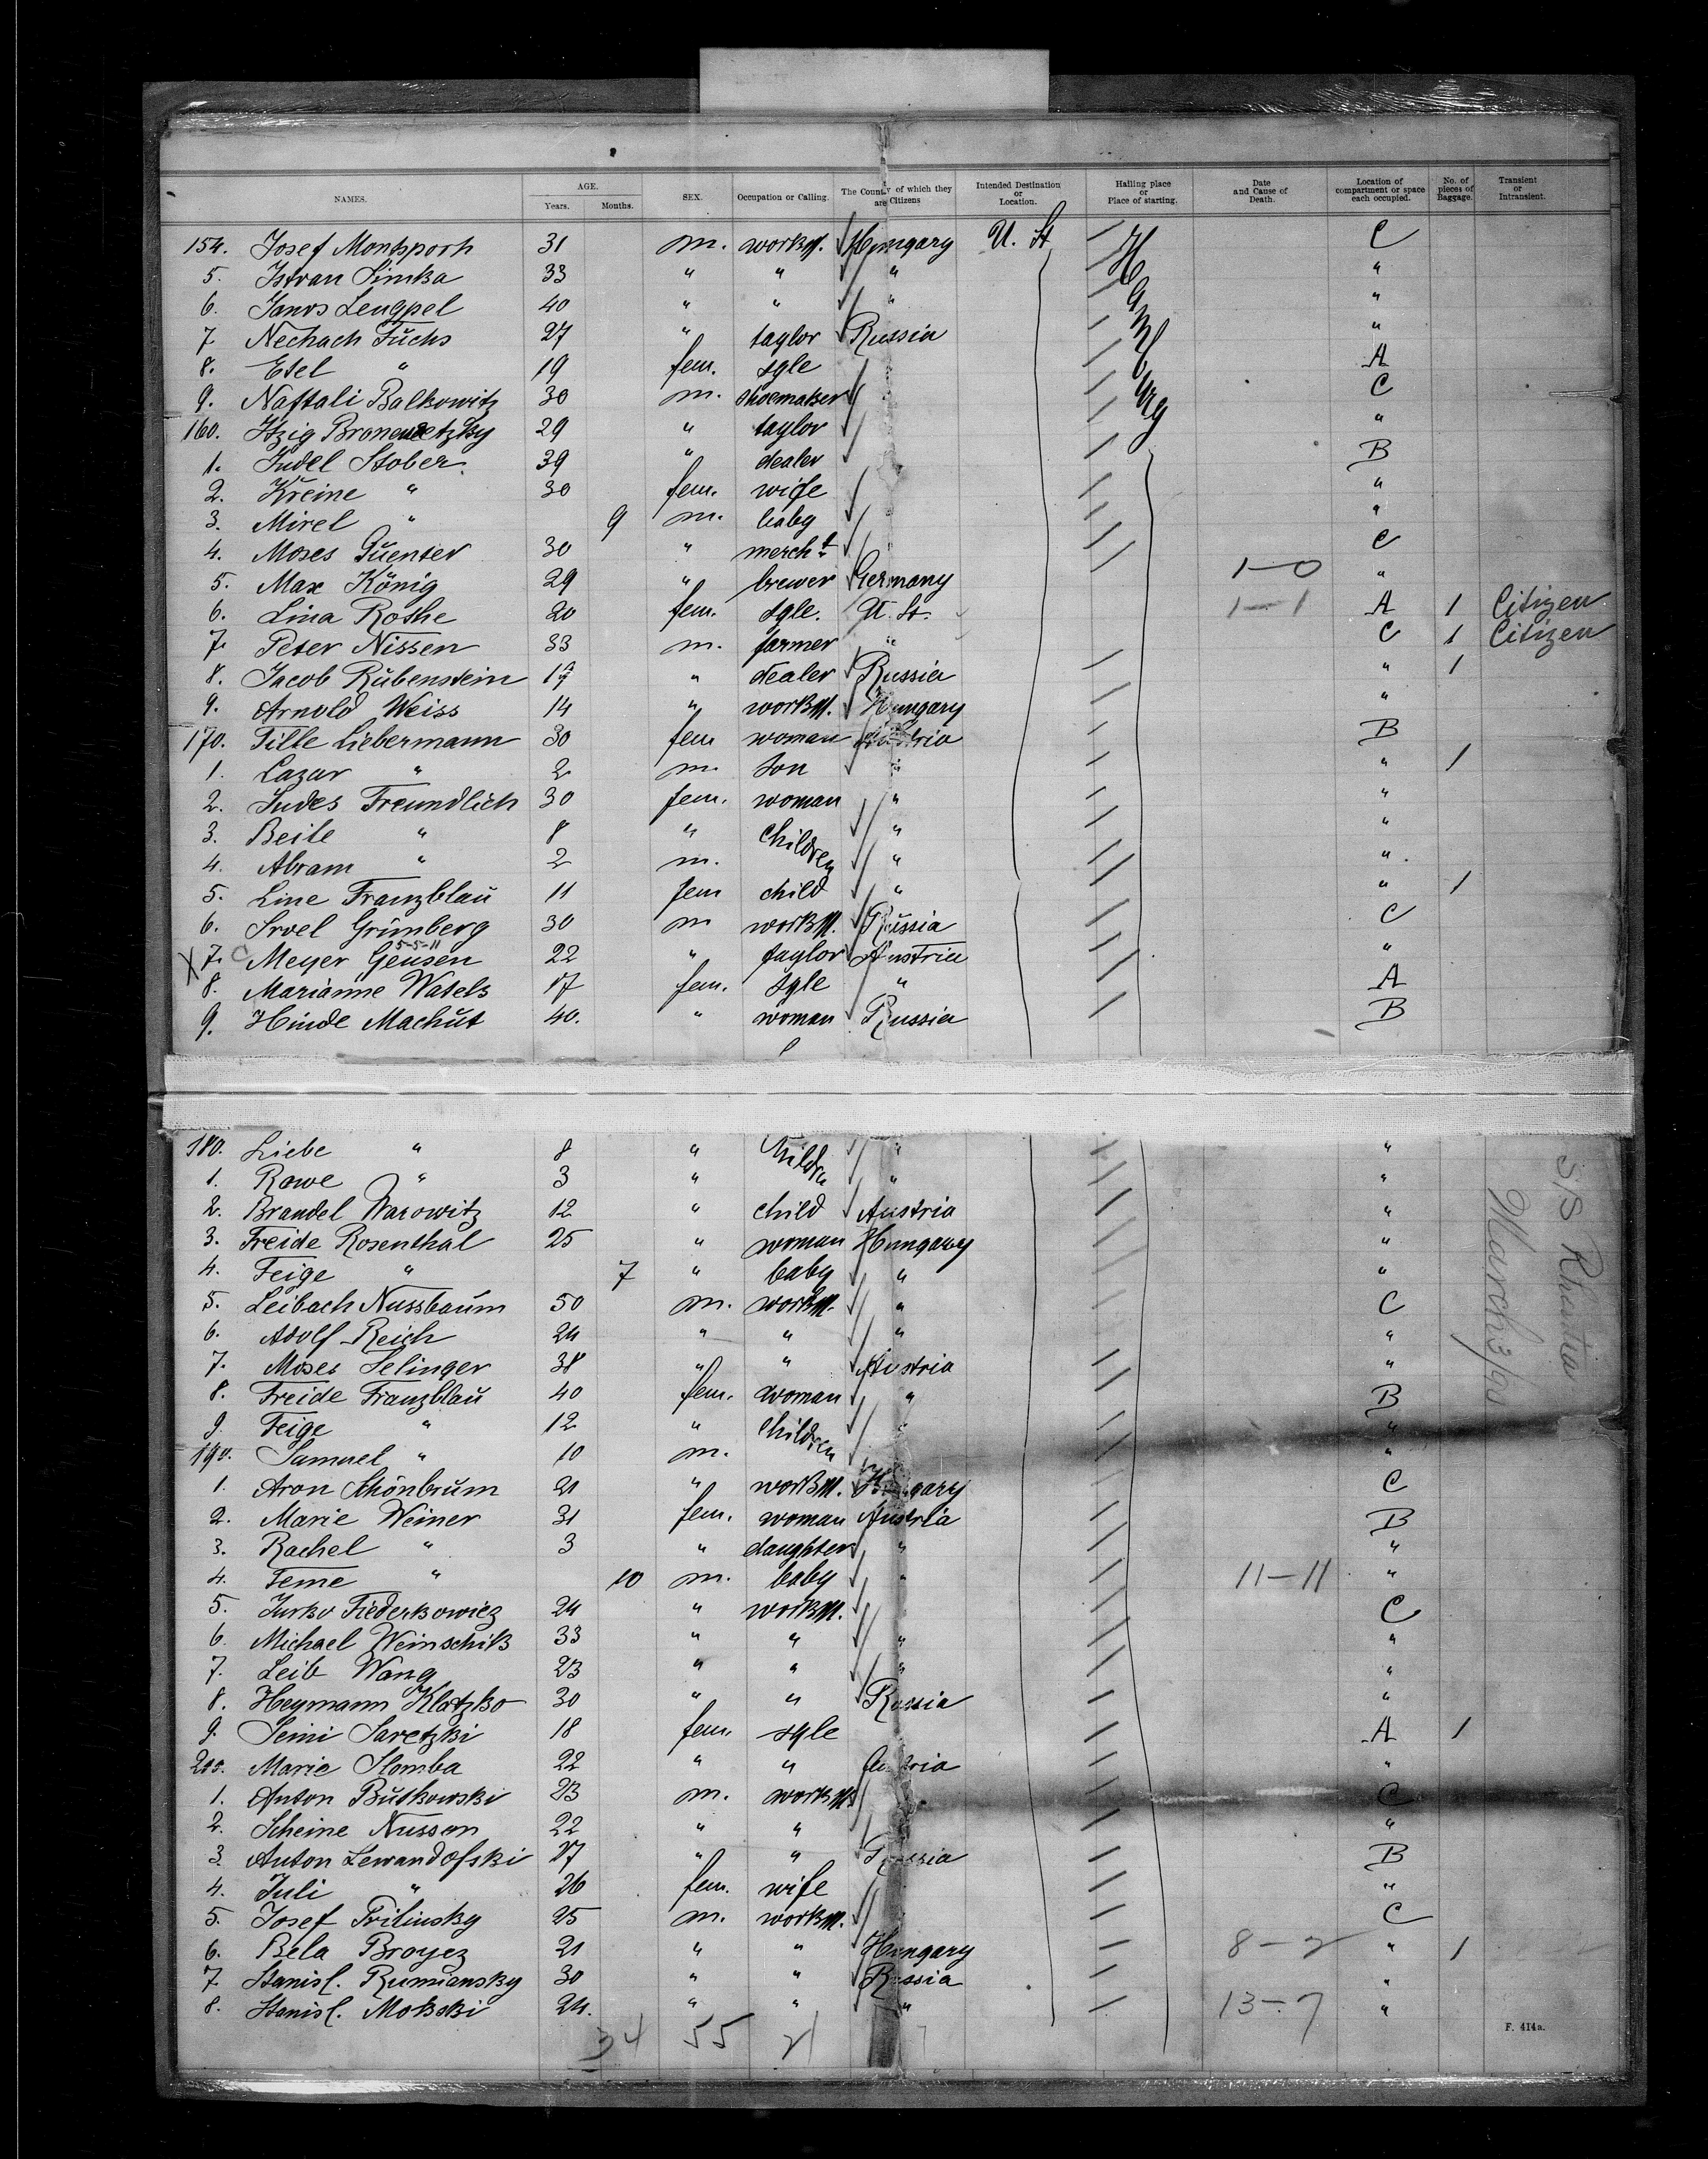 NAMES. AGE. Years. Months. SEX. Occupation or Calling. The Country of which they are Citizens Intended Destination or Location. Hailing place or Place of starting. Date and Cause of Death. Location of compartment or space each occupied. No. of pieces of Baggage. Transient or Intransient.
154. Josef 31 m. workm. Hungary U. St Hamburg C
5. Istvan Simka 33 " " " "
6. Janos Lengyel 40 " " " "
7 Nechach Fuchs 27 " taylor Russia "
8. Etel " 19 fem. sgle A
9. Naftali Balkowitz 30 m. shoemaker C
160. Itzig 29 " taylor "
1. Judel Stober 39 " dealer B
2. Kreine " 30 fem. wife "
3. Mirel " 9 m. baby "
4. Moses Guenter 30 " mercht. C
5. Max König 29 " brewer Germany 1-0 "
6. Lina Rothe 20 fem. sgle. U. St. 1-1 A 1 Citizen
7. Peter Nissen 33 m. farmer " C 1 Citizen
8. Jacob Rubenstein 17 " dealer Russia " 1
9. Arnold Weiss 14 " workm. Hungary "
170. Tille Liebermann 30 fem woman Austria B
1. Lazar " 2 m. son " " 1
2. Judes Freundlich 30 fem. woman " "
3. Beile " 8 " children " "
4. Abram " 2 m. " "
5. Line Franzblau 11 fem child " " 1
6. Sroel Grünberg 30 m workm. Russia C
X 7. C Meyer Geusen 5-5-11 22 " taylor Austria "
8. Marianne Watels 17 fem. sgle " A
9. Hinde Machut 40. " woman Russia B
180. Liebe " 8 " children " "
1. Rowe " 3 " " "
2. Brandel Warowitz 12 " child Austria "
3. Freide Rosenthal 25 " woman Hungary "
4. Feige " 7 " baby " "
5. Leibach Nussbaum 50 m. workm. " C
6. Adolf Reich 24 " " " "
7. Moses Selinger 38 " " Austria "
8. Freide Franzblau 40 fem. woman " B
9. Feige " 12 " children " "
190. Samuel " 10 m. "
1. Aron Schönbrum 21 " workm. Hungary C
2. Marie Weiner 31 fem. woman Austria B
3. Rachel " 3 " daughter " "
4. Feme " 10 m. baby " 11-11 "
5. Jurko Fiederkowicz 24 " workm. C
6. Michael Weinschik 33 " " " "
7. Leib Wang 23 " " " "
8. Heymann Klatzko 30 " " Russia "
9. Semi Saretzki 18 fem. sgle A 1
200. Marie Slomba 22 " " Austria "
1. Anton Butkowski 23 m. workm. C
2. Scheine Nussen 22 " " "
3. Anton Lewandofski 27 " " Russia B
4. Juli " 26 fem. wife "
5. Josef Trilinsky 25 m. workm. C
6. Bela Broyez 21 " " Hungary 8-2 " 1
7. Stanisl. Rumiansky 30 " " Russia "
8. Stanisl. Mokski 24. " " " 13-7 "
34 55 21
S/S Rhaetia
March 3/90
F. 414a.